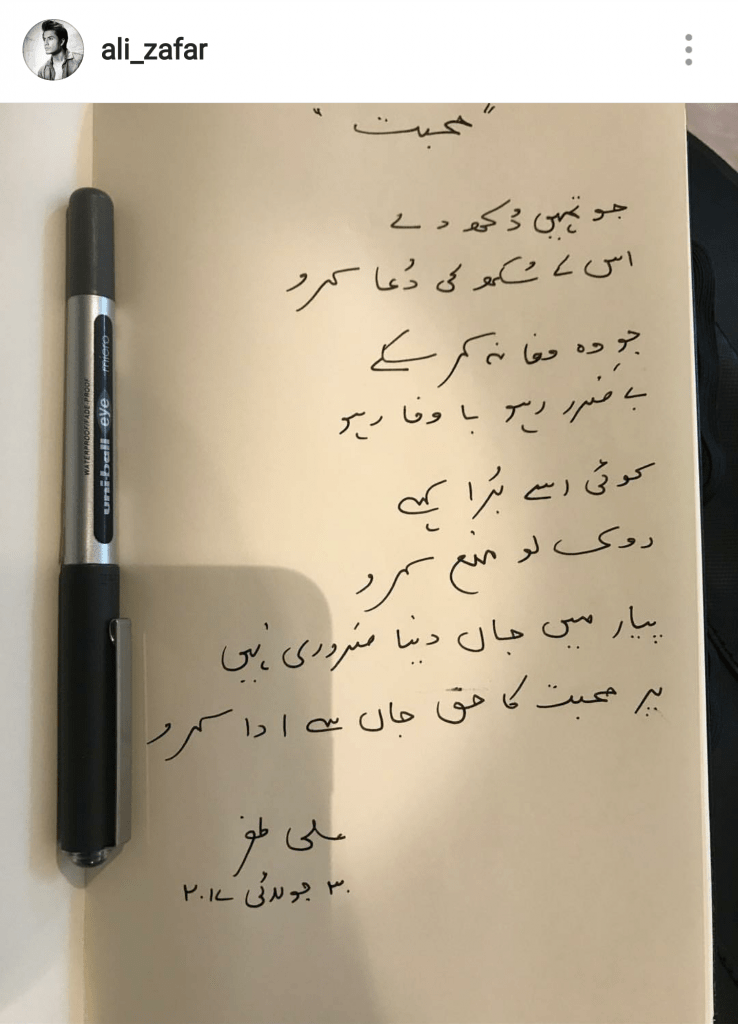 ali_zafar
"محبت"
جو تمہیں دُکھ دے
اس کے سُکھ کی دُعا کرو
جو وہ وفا نہ کر سکے
بے ضرر رہو با وفا رہو
کوئی اسے بُرا کہے
روک لو منع کرو
پیار میں جاں دینا ضروری نہیں
پر محبت کا حق جاں سے ادا کرو
علی ظفر
۳۰ جولائی ۲۰۱۷
uni-ball eye micro
WATERPROOF/FADE PROOF